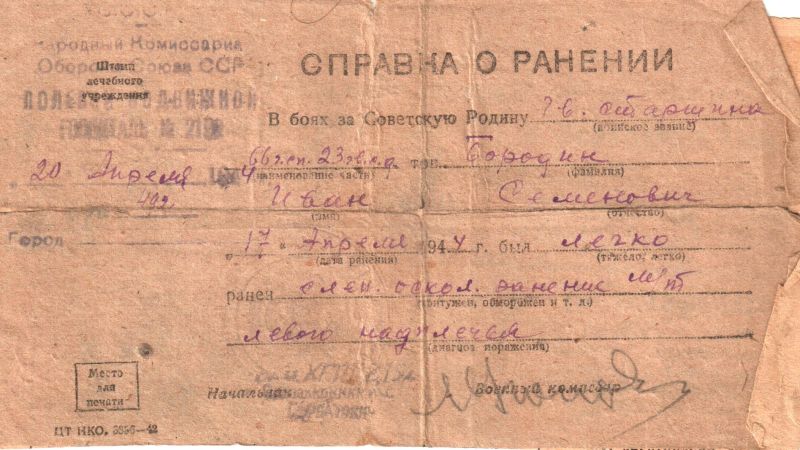 Народный Комиссариа
Обороны Союза ССР
Штамп
лечебного
учреждения
ГОСПИТАЛЬ №
20 Апреля 1944
Город
СПРАВКА О РАНЕНИИ
В боях за Советскую Родину Гв. старшина
(воинское звание)
тов. Бородин
(наименование части) (фамилия)
Иван Семенович
(имя) (отчество)
„17“ Апреля 1944 г. был легко
(дата ранения) (тяжело, легко)
ранен слеп. оскол. ранение м/т
(контужен, обморожен и т. п.)
левого надплечья
(диагноз поражения)
Место
для
печати
Начальник Военный комиссар
ЦТ НКО. 3656—42